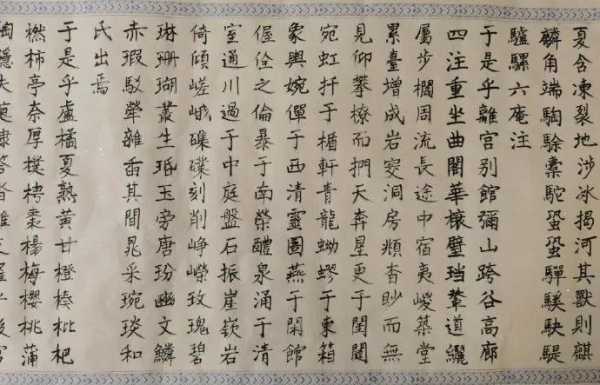 夏含凍裂地涉冰揭河其獸則麒
麟角端騊駼橐駝蛩蛩驒騱駃騠
驢騾六庵注
于是乎離宮別館彌山跨谷高廊
四注重坐曲閣華榱璧璫輦道纚
屬步櫩周流長途中宿夷嵕築堂
累臺增成岩窔洞房頫杳眇而無
見仰攀橑而捫天奔星更于閨闥
宛虹扦于楯軒青龍蚴蟉于東箱
象輿婉僤于西清靈圄燕于閑館
偓佺之倫暴于南榮醴泉涌于清
室通川過于中庭盤石振崖嵚岩
倚傾嵯峨磼礏刻削崢嶸玫瑰碧
琳珊瑚叢生珉玉旁唐玢豳文鱗
赤瑕駁犖雜臿其間晁采琬琰和
氏出焉
于是乎盧橘夏熟黃甘橙楱枇杷
橪柿亭奈厚樸梬棗楊梅櫻桃蒲